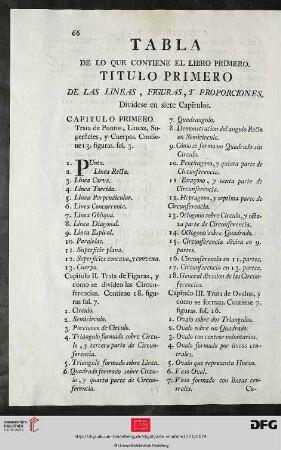 66
TABLA
DE LO QUE CONTIENE EL LIBRO PRIMERO.
TITULO PRIMERO
DE LAS LINEAS, FIGURAS, Y PROPORCIONES,
Dividese en siete Capitulos.
CAPITULO PRIMERO.
Trata de Puntos, Lineas, Su-
perficies, y Cuerpos. Contie-
ne 13. figuras. fol. 3.
1. Punto.
2. Linea Recta.
3. Linea Curva.
4. Linea Turcida.
5. Linea Perpendicular.
6. Linea Concurrente.
7. Linea Obliqua.
8. Linea Diagonal.
9. Linea Espiral.
10. Paralelas.
11. Superficie plana.
12. Superficies concava, y convexa.
13. Cuerpo.
Capitulo II. Trata de Figuras, y
como se dividen las Circun-
ferencias. Contiene 18. figu-
ras fol. 7.
1. Circulo.
2. Semicirculo.
3. Porciones de Circulo.
4. Triangulo formado sobre Circu-
lo, y tercera parte de Circun-
ferencia.
5. Triangulo formado sobre Linea.
6. Quadrado formado sobre Circu-
lo, y quarta parte de Circun-
ferencia.
7. Quadrangulo.
8. Demonstracion del angulo Recto
en Semicirculo.
9. Como se forma un Quadrado sin
Circulo.
10. Penthagono, y quinta parte de
Circunferencia.
11. Exagono, y sexta parte de
Circunferencia.
12. Heptagono, y septima parte de
Circunferencia.
13. Octogono sobre Circulo, y octa-
va parte de Circunferencia.
14. Octogono sobre Quadrado.
15. Circunferencia divisa en 9.
partes.
16. Circunferencia en 11. partes.
17. Circunferencia en 13. partes.
18. General division de las Circun-
ferencias.
Capitulo III. Trata de Ovalos, y
como se forman. Contiene 7.
figuras. fol. 16.
1. Ovalo sobre dos Triangulos.
2. Ovalo sobre un Quadrado.
3. Ovalo con centros voluntarios.
4. Ovalo formado por lineas cen-
trales.
5. Ovalo que representa Huevo.
6. Vaso Oval.
7. Vaso formado con lineas cen-
trales.
Ca-
© Universitätsbibliothek Heidelberg
DFG